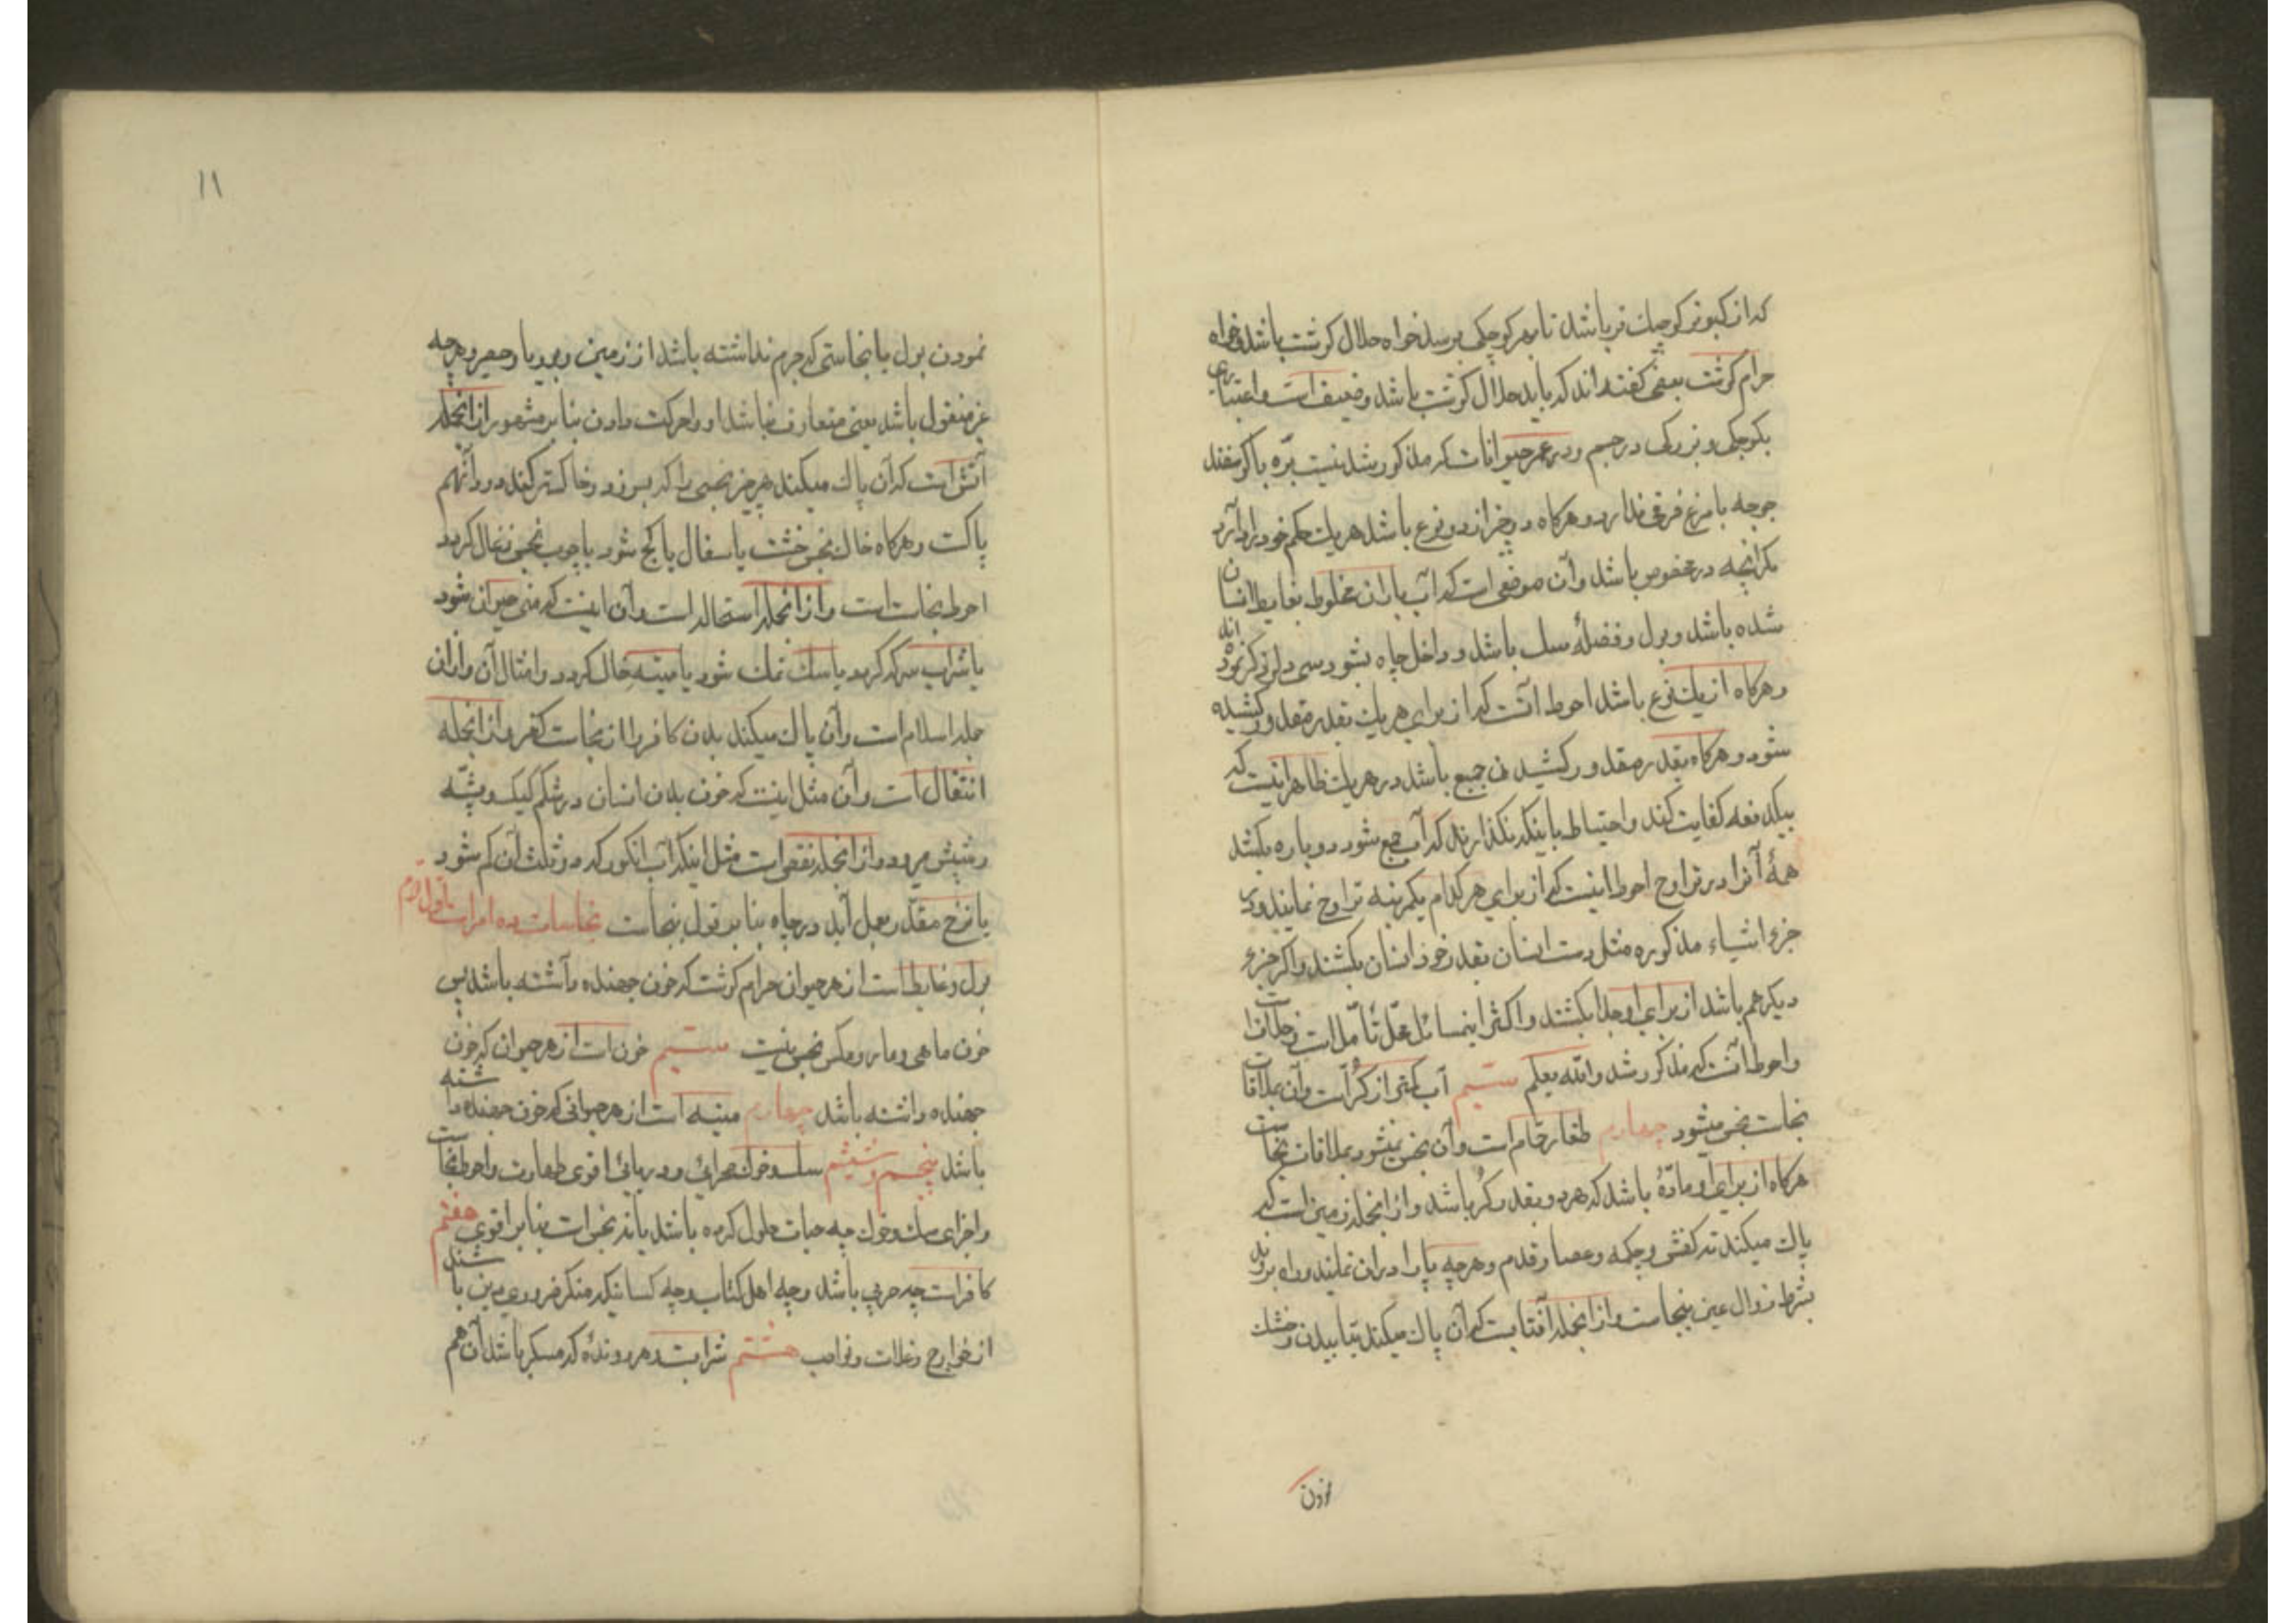 که از کبوتر کوچک تر باشد تا بهر کوچکی برسد خواه حلال کوشت باشد و خواه
حرام کوشت بعضی کفته اند که باید حلال کوشت باشد و ضعیف است و اعتباری
بکوچکی و بزرکی در جسم و در عمر حیوانات که مذکور شد نیست برّه با کوسفند
جوجه با مرغ فرقی ندارد و هرکاه دو چیز از دو نوع باشد هریک حکم خود را دارد
مکر آنچه در مخصوص باشد و آن موضعی است که آب باران مخلوط بغایط انسان
شده باشد و بول و فضلهٔ سک باشد و داخل چاه بشود سی دلو ذکر نموده اند
و هرکاه از یک نوع باشد احوط آنست که از برای هریک بقدر مقدور کشیده
شود و هرکاه بقدر مقدور کشیدن جمیع باشد در هریک ظاهر اینست که
بیکدفعه کفایت کند و احتیاط باینکه نکذارند که آب جمع شود دوباره بکشد
همهٔ آنرا در تراوح احوط اینست که از برای هرکدام یکمرتبه تراوح نمایند و در
جزء اشیاء مذکوره مثل دست انسان بقدر خود انسان بکشند و اکر جزء
دیکر هم باشد از برای او جدا بکشند و اکثر اینمسائل محلّ تأمّل است
و احوط آنست که مذکور شد و الله یعلم سیّم آب کمتر از کُر است و آن بملاقات
نجاست نجس میشود چهارم حمّام است و آن نجس نمیشود بملاقات نجاست
هرکاه از برای او مادّهٔ باشد که هر دو بقدر کُر باشد و از انجمله زمین است که
پاک میکند ته کفش و چکمه و عصا و قدم و هرچه پا را در ان نمایند و راه بروند
بشرط زوال عین نجاست و از انجمله آفتابست که آن پاک میکند بتابیدن و خشک
نمودن
۱۱
نمودن بول یا نجاستی که جرم نداشته باشد از زمین و بوریا و حصیر و هرچه
غیر منقول باشد یعنی متعارف نباشد او را حرکت دادن بنا بر مشهور از انجمله
آتش است که آن پاک میکند هر چیز نجسی را که بسوزد و خاکستر کند و دود آنهم
پاکست و هرکاه خاک نجس خشت یا سفال یا کج شود یا چوب نجس زغال کردد
احوط نجاست است و از انجمله استحاله است و آن اینست که منی حیوان شود
یا شراب سرکه کردد یا سک نمک شود یا میته خاک کردد و امثال آن و از ان
جمله اسلام است و آن پاک میکند بدن کافر را از نجاست کفر و از انجمله
انتقال است و آن مثل اینست که خون بدن انسان در شکم کیک و پشّه
و شپش میرود و از انجمله نقص است مثل اینکه آب انکور که دو ثلث آن کم شود
یا نزح مقدّر بعمل آید در چاه بنا بر قول بنجاست نجاسات ده امر است اول دوم
بول و غایط است از هر حیوان حرام کوشت که خون جهنده داشته باشد پس
خون ماهی و مار و مکس نجس نیست سیّم خون است از هر حیوان که خون
جهنده داشته باشد چهارم میته است از هر حیوانی که خون جهنده داشته
باشد پنجم و ششم سک و خوک صحرائی و دریائی اقوی طهارت و احوط نجاست
و اجزای سک و خوک چه حیات حلول کرده باشد یا نه نجس است بنا بر اقوی هفتم
کافر است چه حربی باشد و چه اهل کتاب و چه کسانیکه منکر ضروری دین باشند
از خوارج و غلات و نواصب هشتم شرابست و هر روندهٔ که مسکر باشد آن هم